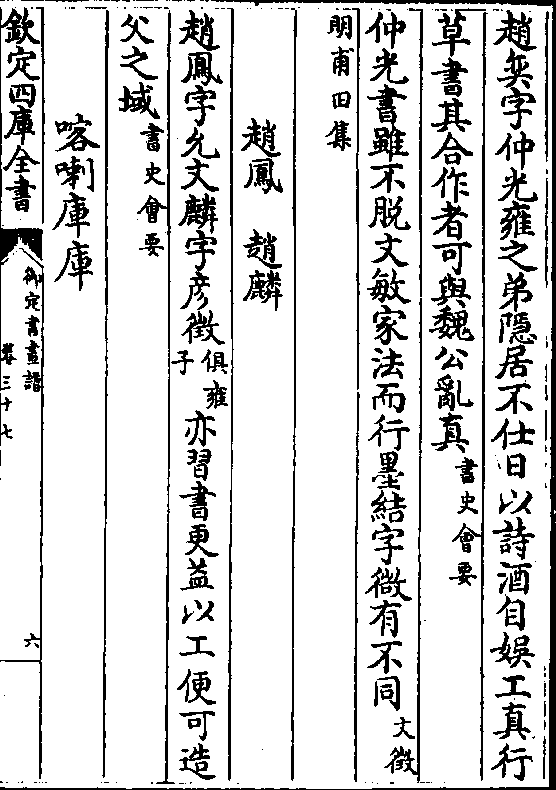 趙奕字仲光雍之弟隱居不仕日以詩酒自娛工真行
草書其合作者可與魏公亂真書史會要
仲光書雖不脱文敏家法而行墨結字微有不同文徵
明甫田集
趙鳳 趙麟
趙鳳字允文麟字彦徵俱雍子亦習書更益以工便可造
父之域書史會要
喀喇庫庫
欽定四庫全書 御定書畫譜 卷三十七 六